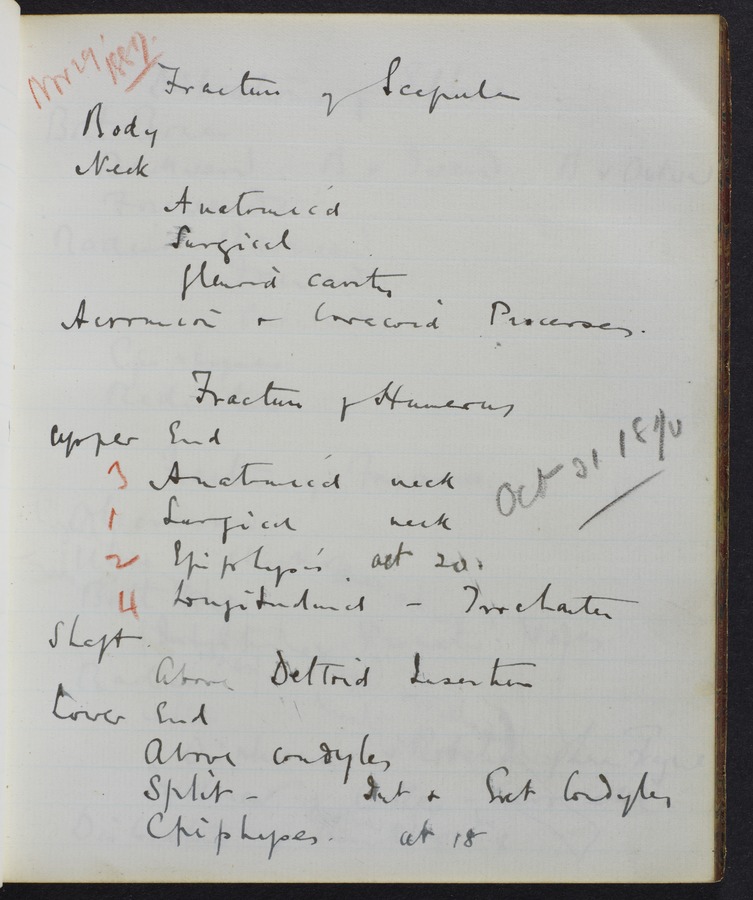 Nov 29 1887.
Fracture of Scapula
Body
Neck
Anatomical
Surgical
Glenoid cavity
Acromion & Coracoid Processes.
Fracture of Humerus
Upper End
3 Anatomical neck
Oct 31
1 Surgical neck
2 Epiphysis aet 20.
4 Longitudinal - Trochanter
Shaft
Above Deltoid Insertion
Lower End
Above condyles
Split - Int & Ext Condyles
Epiphyses. at 18